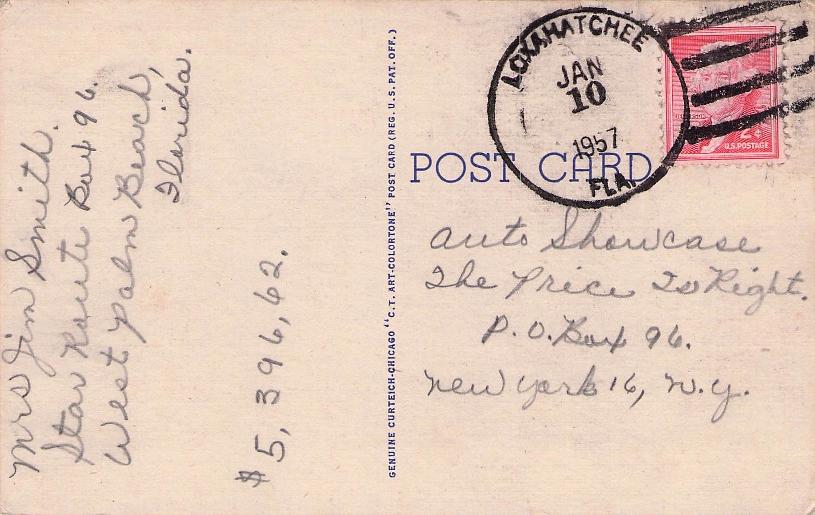 Mrs Jim Smith.
Star Route Box 96.
West Palm Beach,
Florida.
$5,396,62.
GENUINE CURTEICH-CHICAGO "C.T. ART-COLORTONE" POST CARD (REG. U.S. PAT. OFF.)
LOXAHATCHEE
JAN
10
1957
FLA.
2¢
U.S. POSTAGE
POST CARD
Auto Showcase
The Price Is Right.
P.O. Box 96.
New York 16, N.Y.